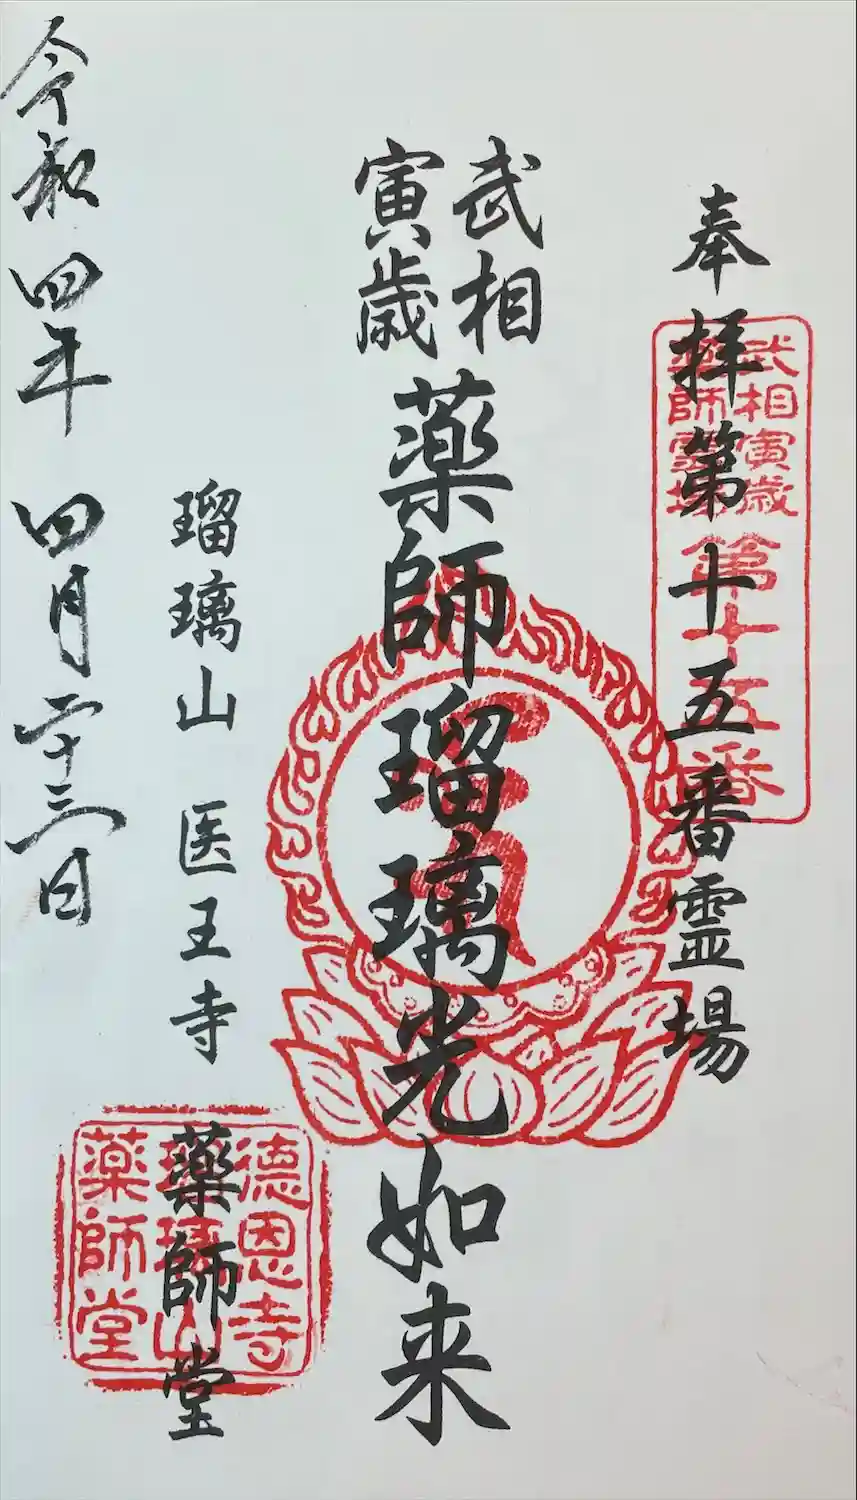 奉拝第十五番霊場
武相寅歳
薬師霊場
第十五番
武相
寅歳
薬師瑠璃光如来
瑠璃山 医王寺
薬師堂
德恩寺
瑠璃山
薬師堂
令和四年 四月二十三日